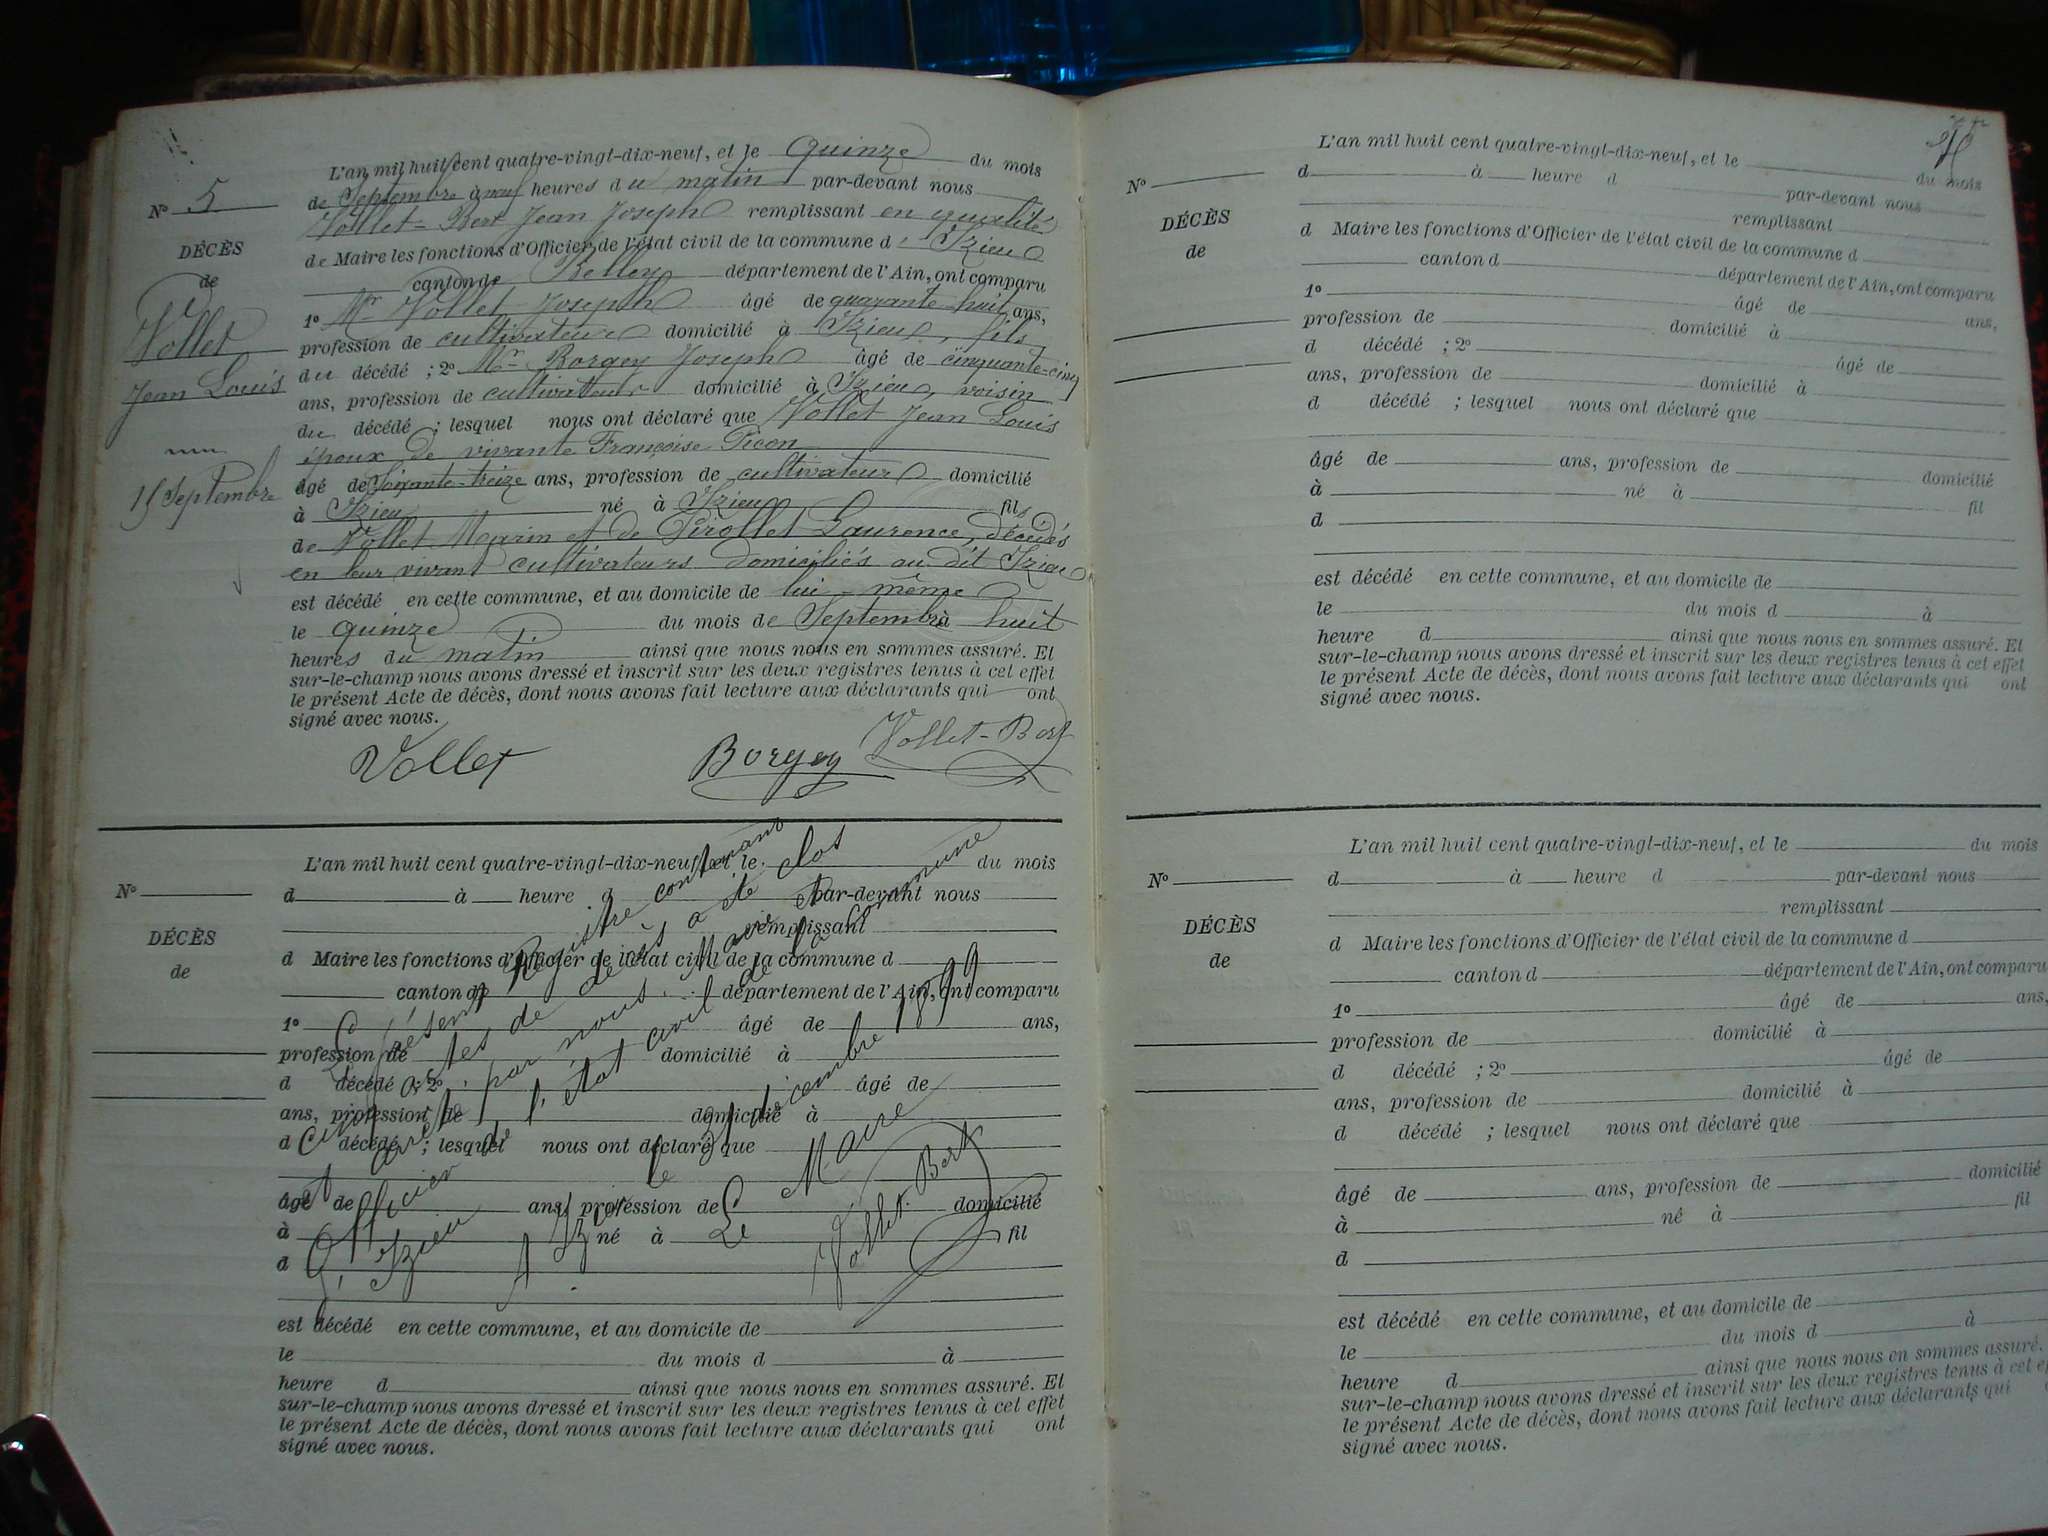 L'an mil huit cent quatre-vingt-dix-neuf, et le Quinze du mois
de Septembre à neuf heures du matin par-devant nous
Vollet-Bert Jean Joseph remplissant en qualité
de Maire les fonctions d'Officier de l'état civil de la commune d'Izieu
canton de Belley département de l'Ain, ont comparu
1º Mr Vollet Joseph âgé de quarante huit ans,
profession de cultivateur domicilié à Izieu, fils
du décédé ; 2º Mr Borgey Joseph âgé de cinquante-cinq
ans, profession de cultivateur domicilié à Izieu, voisin
du décédé ; lesquel nous ont déclaré que Vollet Jean Louis
époux de vivante Françoise Picon
âgé de Soixante-treize ans, profession de cultivateur domicilié
à Izieu né à Izieu fils
de Vollet Marin et de Pirollet Laurence, décédés
en leur vivant cultivateurs domiciliés au dit Izieu
est décédé en cette commune, et au domicile de lui même
le quinze du mois de Septembre à huit
heures du matin ainsi que nous nous en sommes assuré. Et
sur-le-champ nous avons dressé et inscrit sur les deux registres tenus à cet effet
le présent Acte de décès, dont nous avons fait lecture aux déclarants qui ont
signé avec nous.
Vollet Borgey Vollet-Bert
Nº 5
DÉCÈS
de
Vollet
Jean Louis
15 Septembre
L'an mil huit cent quatre-vingt-dix-neuf, et le du mois
d à heure d par-devant nous
remplissant
d Maire les fonctions d'Officier de l'état civil de la commune d
canton d département de l'Ain, ont comparu
1º âgé de ans,
profession de domicilié à
d décédé ; 2º âgé de
ans, profession de domicilié à
d décédé ; lesquel nous ont déclaré que
âgé de ans, profession de domicilié
à né à fil
d
est décédé en cette commune, et au domicile de
le du mois d à
heure d ainsi que nous nous en sommes assuré. Et
sur-le-champ nous avons dressé et inscrit sur les deux registres tenus à cet effet
le présent Acte de décès, dont nous avons fait lecture aux déclarants qui ont
signé avec nous.
Nº
DÉCÈS
de
Le présent Registre contenant
cinq actes de décès a été clos
et arrêté par nous, Maire et
Officier de l'état civil de la commune
d'Izieu
A Izieu le 31 décembre 1899
Le Maire
Vollet-Bert
L'an mil huit cent quatre-vingt-dix-neuf, et le du mois
d à heure d par-devant nous
remplissant
d Maire les fonctions d'Officier de l'état civil de la commune d
canton d département de l'Ain, ont comparu
1º âgé de ans,
profession de domicilié à
d décédé ; 2º âgé de
ans, profession de domicilié à
d décédé ; lesquel nous ont déclaré que
âgé de ans, profession de domicilié
à né à fil
d
est décédé en cette commune, et au domicile de
le du mois d à
heure d ainsi que nous nous en sommes assuré. Et
sur-le-champ nous avons dressé et inscrit sur les deux registres tenus à cet effet
le présent Acte de décès, dont nous avons fait lecture aux déclarants qui ont
signé avec nous.
Nº
DÉCÈS
de
L'an mil huit cent quatre-vingt-dix-neuf, et le du mois
d à heure d par-devant nous
remplissant
d Maire les fonctions d'Officier de l'état civil de la commune d
canton d département de l'Ain, ont comparu
1º âgé de ans,
profession de domicilié à
d décédé ; 2º âgé de
ans, profession de domicilié à
d décédé ; lesquel nous ont déclaré que
âgé de ans, profession de domicilié
à né à fil
d
est décédé en cette commune, et au domicile de
le du mois d à
heure d ainsi que nous nous en sommes assuré.
sur-le-champ nous avons dressé et inscrit sur les deux registres tenus à cet
le présent Acte de décès, dont nous avons fait lecture aux déclarants qui
signé avec nous.
Nº
DÉCÈS
de